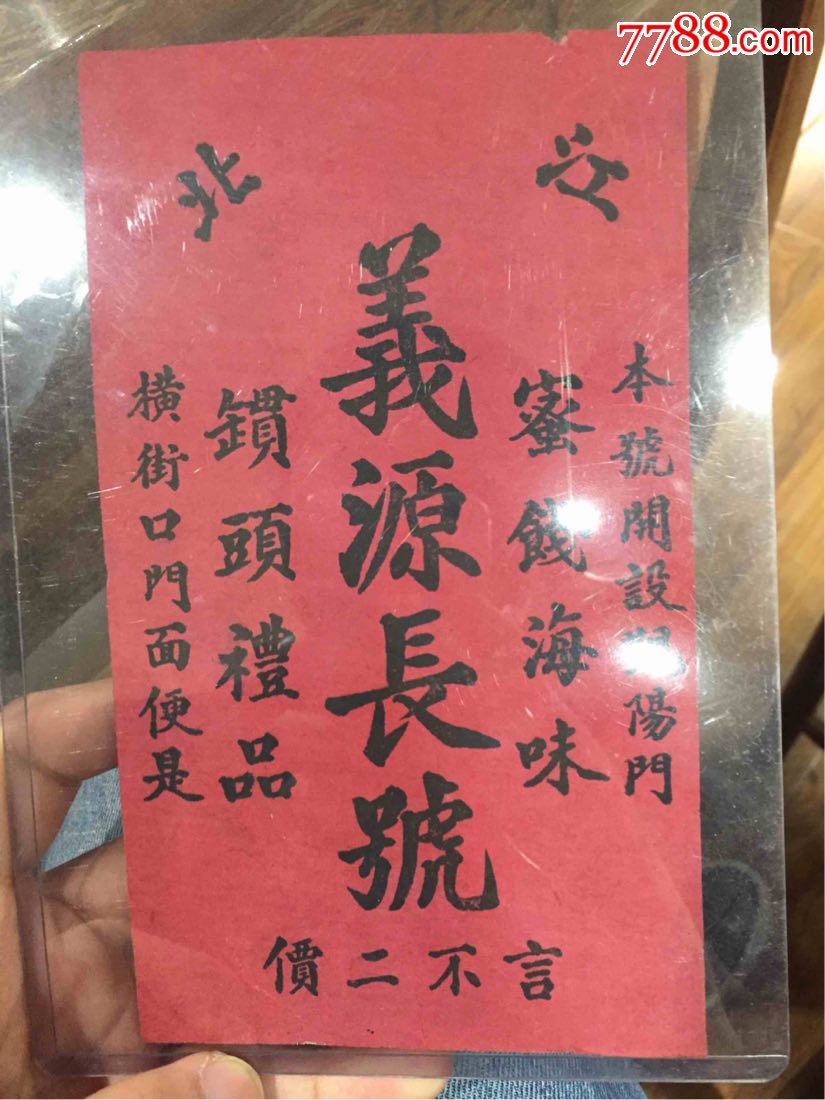 江北
本號開設陽門
蜜餞海味
義源長號
罆頭禮品
橫街口門面便是
言不二價
7788.com